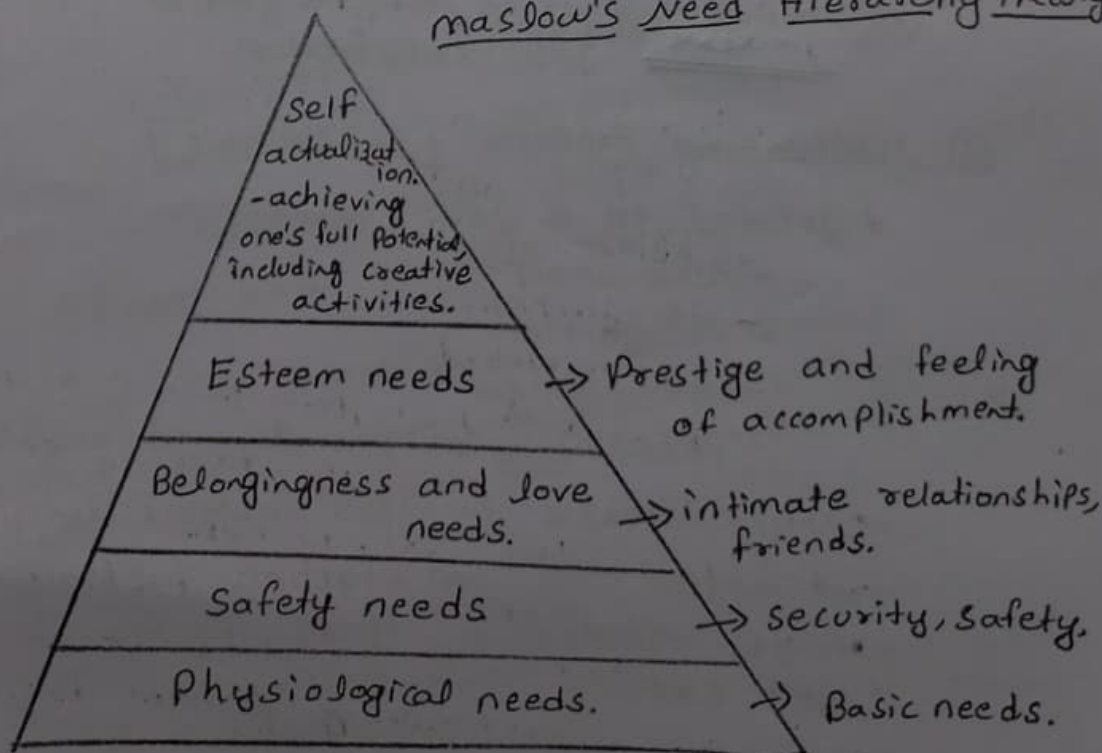 Maslow's Need Hierarchy
Self
actualizat
ion.
-achieving
one's full Potential,
including creative
activities.
Esteem needs
→ Prestige and feeling
of accomplishment.
Belongingness and love
needs.
→ intimate relationships,
friends.
Safety needs
→ security, safety.
Physiological needs.
→ Basic needs.